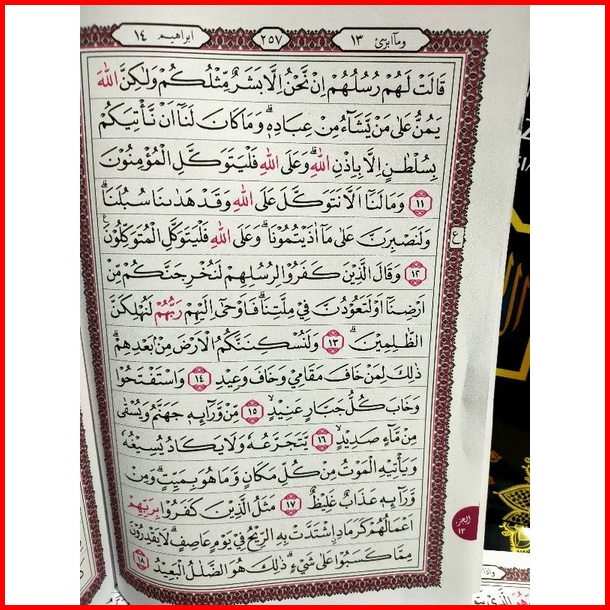 وما ابرئ ١٣ ٢٥٧ ابراهيم ١٤
قَالَتْ لَهُمْ رُسُلُهُمْ اِنْ نَّحْنُ اِلَّا بَشَرٌ مِّثْلُكُمْ وَلٰكِنَّ اللّٰهَ
يَمُنُّ عَلٰى مَنْ يَّشَاۤءُ مِنْ عِبَادِهٖۗ وَمَا كَانَ لَنَآ اَنْ نَّأْتِيَكُمْ
بِسُلْطٰنٍ اِلَّا بِاِذْنِ اللّٰهِۗ وَعَلَى اللّٰهِ فَلْيَتَوَكَّلِ الْمُؤْمِنُوْنَ
١١ وَمَا لَنَآ اَلَّا نَتَوَكَّلَ عَلَى اللّٰهِ وَقَدْ هَدٰىنَا سُبُلَنَاۗ
وَلَنَصْبِرَنَّ عَلٰى مَآ اٰذَيْتُمُوْنَاۗ وَعَلَى اللّٰهِ فَلْيَتَوَكَّلِ الْمُتَوَكِّلُوْنَ ࣖ
ع
١٢ وَقَالَ الَّذِيْنَ كَفَرُوْا لِرُسُلِهِمْ لَنُخْرِجَنَّكُمْ مِّنْ
اَرْضِنَآ اَوْ لَتَعُوْدُنَّ فِيْ مِلَّتِنَاۗ فَاَوْحٰٓى اِلَيْهِمْ رَبُّهُمْ لَنُهْلِكَنَّ
الظّٰلِمِيْنَۗ ١٣ وَلَنُسْكِنَنَّكُمُ الْاَرْضَ مِنْۢ بَعْدِهِمْۗ
ذٰلِكَ لِمَنْ خَافَ مَقَامِيْ وَخَافَ وَعِيْدِ ١٤ وَاسْتَفْتَحُوْا
وَخَابَ كُلُّ جَبَّارٍ عَنِيْدٍۙ ١٥ مِّنْ وَّرَاۤىِٕهٖ جَهَنَّمُ وَيُسْقٰى
مِنْ مَّاۤءٍ صَدِيْدٍۙ ١٦ يَّتَجَرَّعُهٗ وَلَا يَكَادُ يُسِيْغُهٗ
وَيَأْتِيْهِ الْمَوْتُ مِنْ كُلِّ مَكَانٍ وَّمَا هُوَ بِمَيِّتٍۗ وَمِنْ
وَّرَاۤىِٕهٖ عَذَابٌ غَلِيْظٌ ١٧ مَثَلُ الَّذِيْنَ كَفَرُوْا بِرَبِّهِمْ
اَعْمَالُهُمْ كَرَمَادِ ࣙاشْتَدَّتْ بِهِ الرِّيْحُ فِيْ يَوْمٍ عَاصِفٍۗ لَا يَقْدِرُوْنَ
مِمَّا كَسَبُوْا عَلٰى شَيْءٍۗ ذٰلِكَ هُوَ الضَّلٰلُ الْبَعِيْدُ ١٨
الجزء
١٣